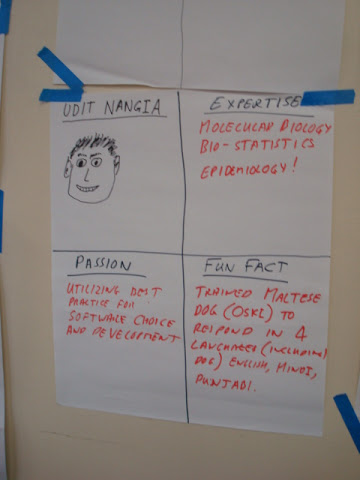 UDIT NANGIA
EXPERTISE
MOLECULAR BIOLOGY
BIO-STATISTICS
EPIDEMIOLOGY!
PASSION
UTILIZING BEST
PRACTISE FOR
SOFTWARE CHOICE
AND DEVELOPMENT
FUN FACT
TRAINED MALTESE
DOG (OSKI) TO
RESPOND IN 4
LANGUAGES (INCLUDING
DOG) ENGLISH, HINDI,
PUNJABI.